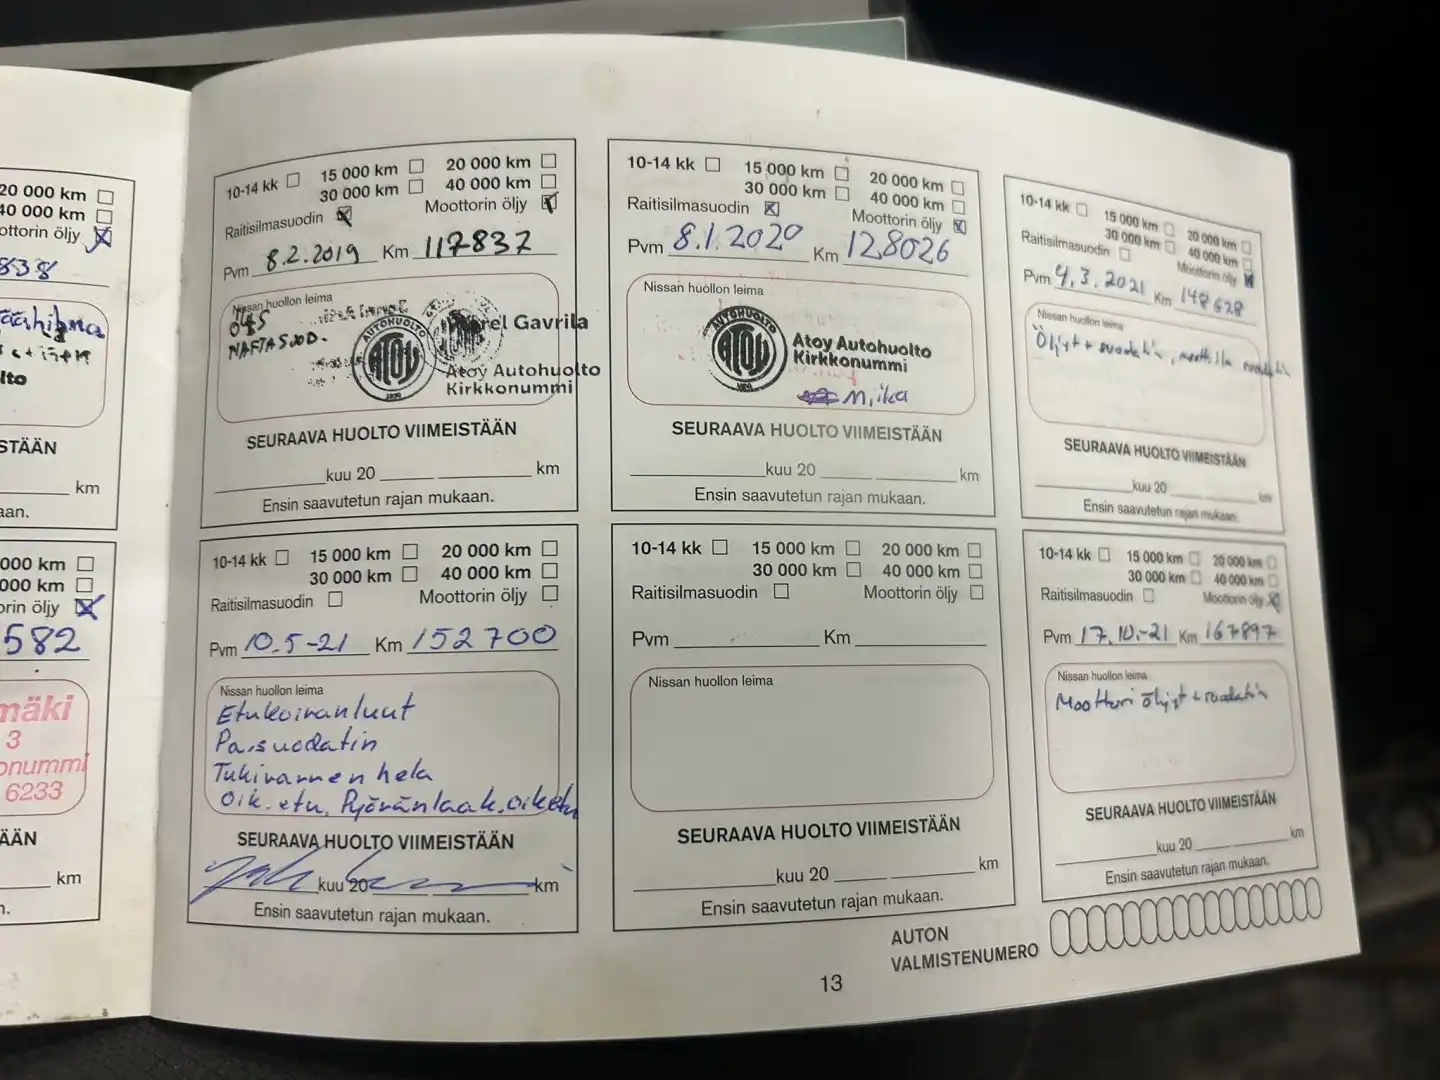 20 000 km
40 000 km
ottorin öljy
838
lto
STÄÄN
km
aan.
000 km
000 km
orin öljy
582
mäki
3
onummi
6233
ÄÄN
km
n.
10-14 kk 15 000 km 20 000 km
30 000 km 40 000 km
Raitisilmasuodin Moottorin öljy
Pvm 8.2.2019 Km 117837
Nissan huollon leima
NAFTASUOD.
AUTOHUOLTO
ATOY
Gavrila
Atoy Autohuolto
Kirkkonummi
SEURAAVA HUOLTO VIIMEISTÄÄN
kuu 20 km
Ensin saavutetun rajan mukaan.
10-14 kk 15 000 km 20 000 km
30 000 km 40 000 km
Raitisilmasuodin Moottorin öljy
Pvm 8.1.2020 Km 128026
Nissan huollon leima
AUTOHUOLTO
ATOY
Atoy Autohuolto
Kirkkonummi
Miika
SEURAAVA HUOLTO VIIMEISTÄÄN
kuu 20 km
Ensin saavutetun rajan mukaan.
10-14 kk 15 000 km 20 000 km
30 000 km 40 000 km
Raitisilmasuodin Moottorin öljy
Pvm 4.3.2021 Km 148628
Nissan huollon leima
Öljyt + suodatin,
SEURAAVA HUOLTO VIIMEISTÄÄN
kuu 20 km
Ensin saavutetun rajan mukaan.
10-14 kk 15 000 km 20 000 km
30 000 km 40 000 km
Raitisilmasuodin Moottorin öljy
Pvm 10.5-21 Km 152700
Nissan huollon leima
Etukoiranluut
Pa.suodatin
Tukivarren hela
Oik. etu. Pyöränlaak. oik etu
SEURAAVA HUOLTO VIIMEISTÄÄN
kuu 20 km
Ensin saavutetun rajan mukaan.
10-14 kk 15 000 km 20 000 km
30 000 km 40 000 km
Raitisilmasuodin Moottorin öljy
Pvm Km
Nissan huollon leima
SEURAAVA HUOLTO VIIMEISTÄÄN
kuu 20 km
Ensin saavutetun rajan mukaan.
10-14 kk 15 000 km 20 000 km
30 000 km 40 000 km
Raitisilmasuodin Moottorin öljy
Pvm 17.10.-21 Km 167897
Nissan huollon leima
Moottori öljyt + suodatin
SEURAAVA HUOLTO VIIMEISTÄÄN
kuu 20 km
Ensin saavutetun rajan mukaan.
AUTON
VALMISTENUMERO
13